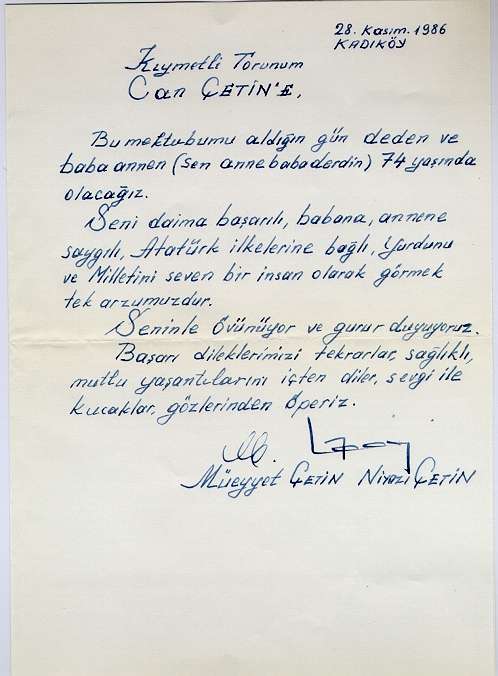 28. Kasım. 1986
KADIKÖY
Kıymetli Torunum
Can ÇETİN'E,
Bu mektubumu aldığın gün deden ve
baba annen (sen anne baba derdin) 74 yaşında
olacağız.
Seni daima başarılı, babana, annene
saygılı, Atatürk ilkelerine bağlı, Yurdunu
ve Milletini seven bir insan olarak görmek
tek arzumuzdur.
Seninle övünüyor ve gurur duyuyoruz.
Başarı dileklerimizi tekrarlar, sağlıklı,
mutlu yaşantılarını içten diler, sevgi ile
kucaklar, gözlerinden öperiz.
Müeyyet ÇETİN Niyazi ÇETİN